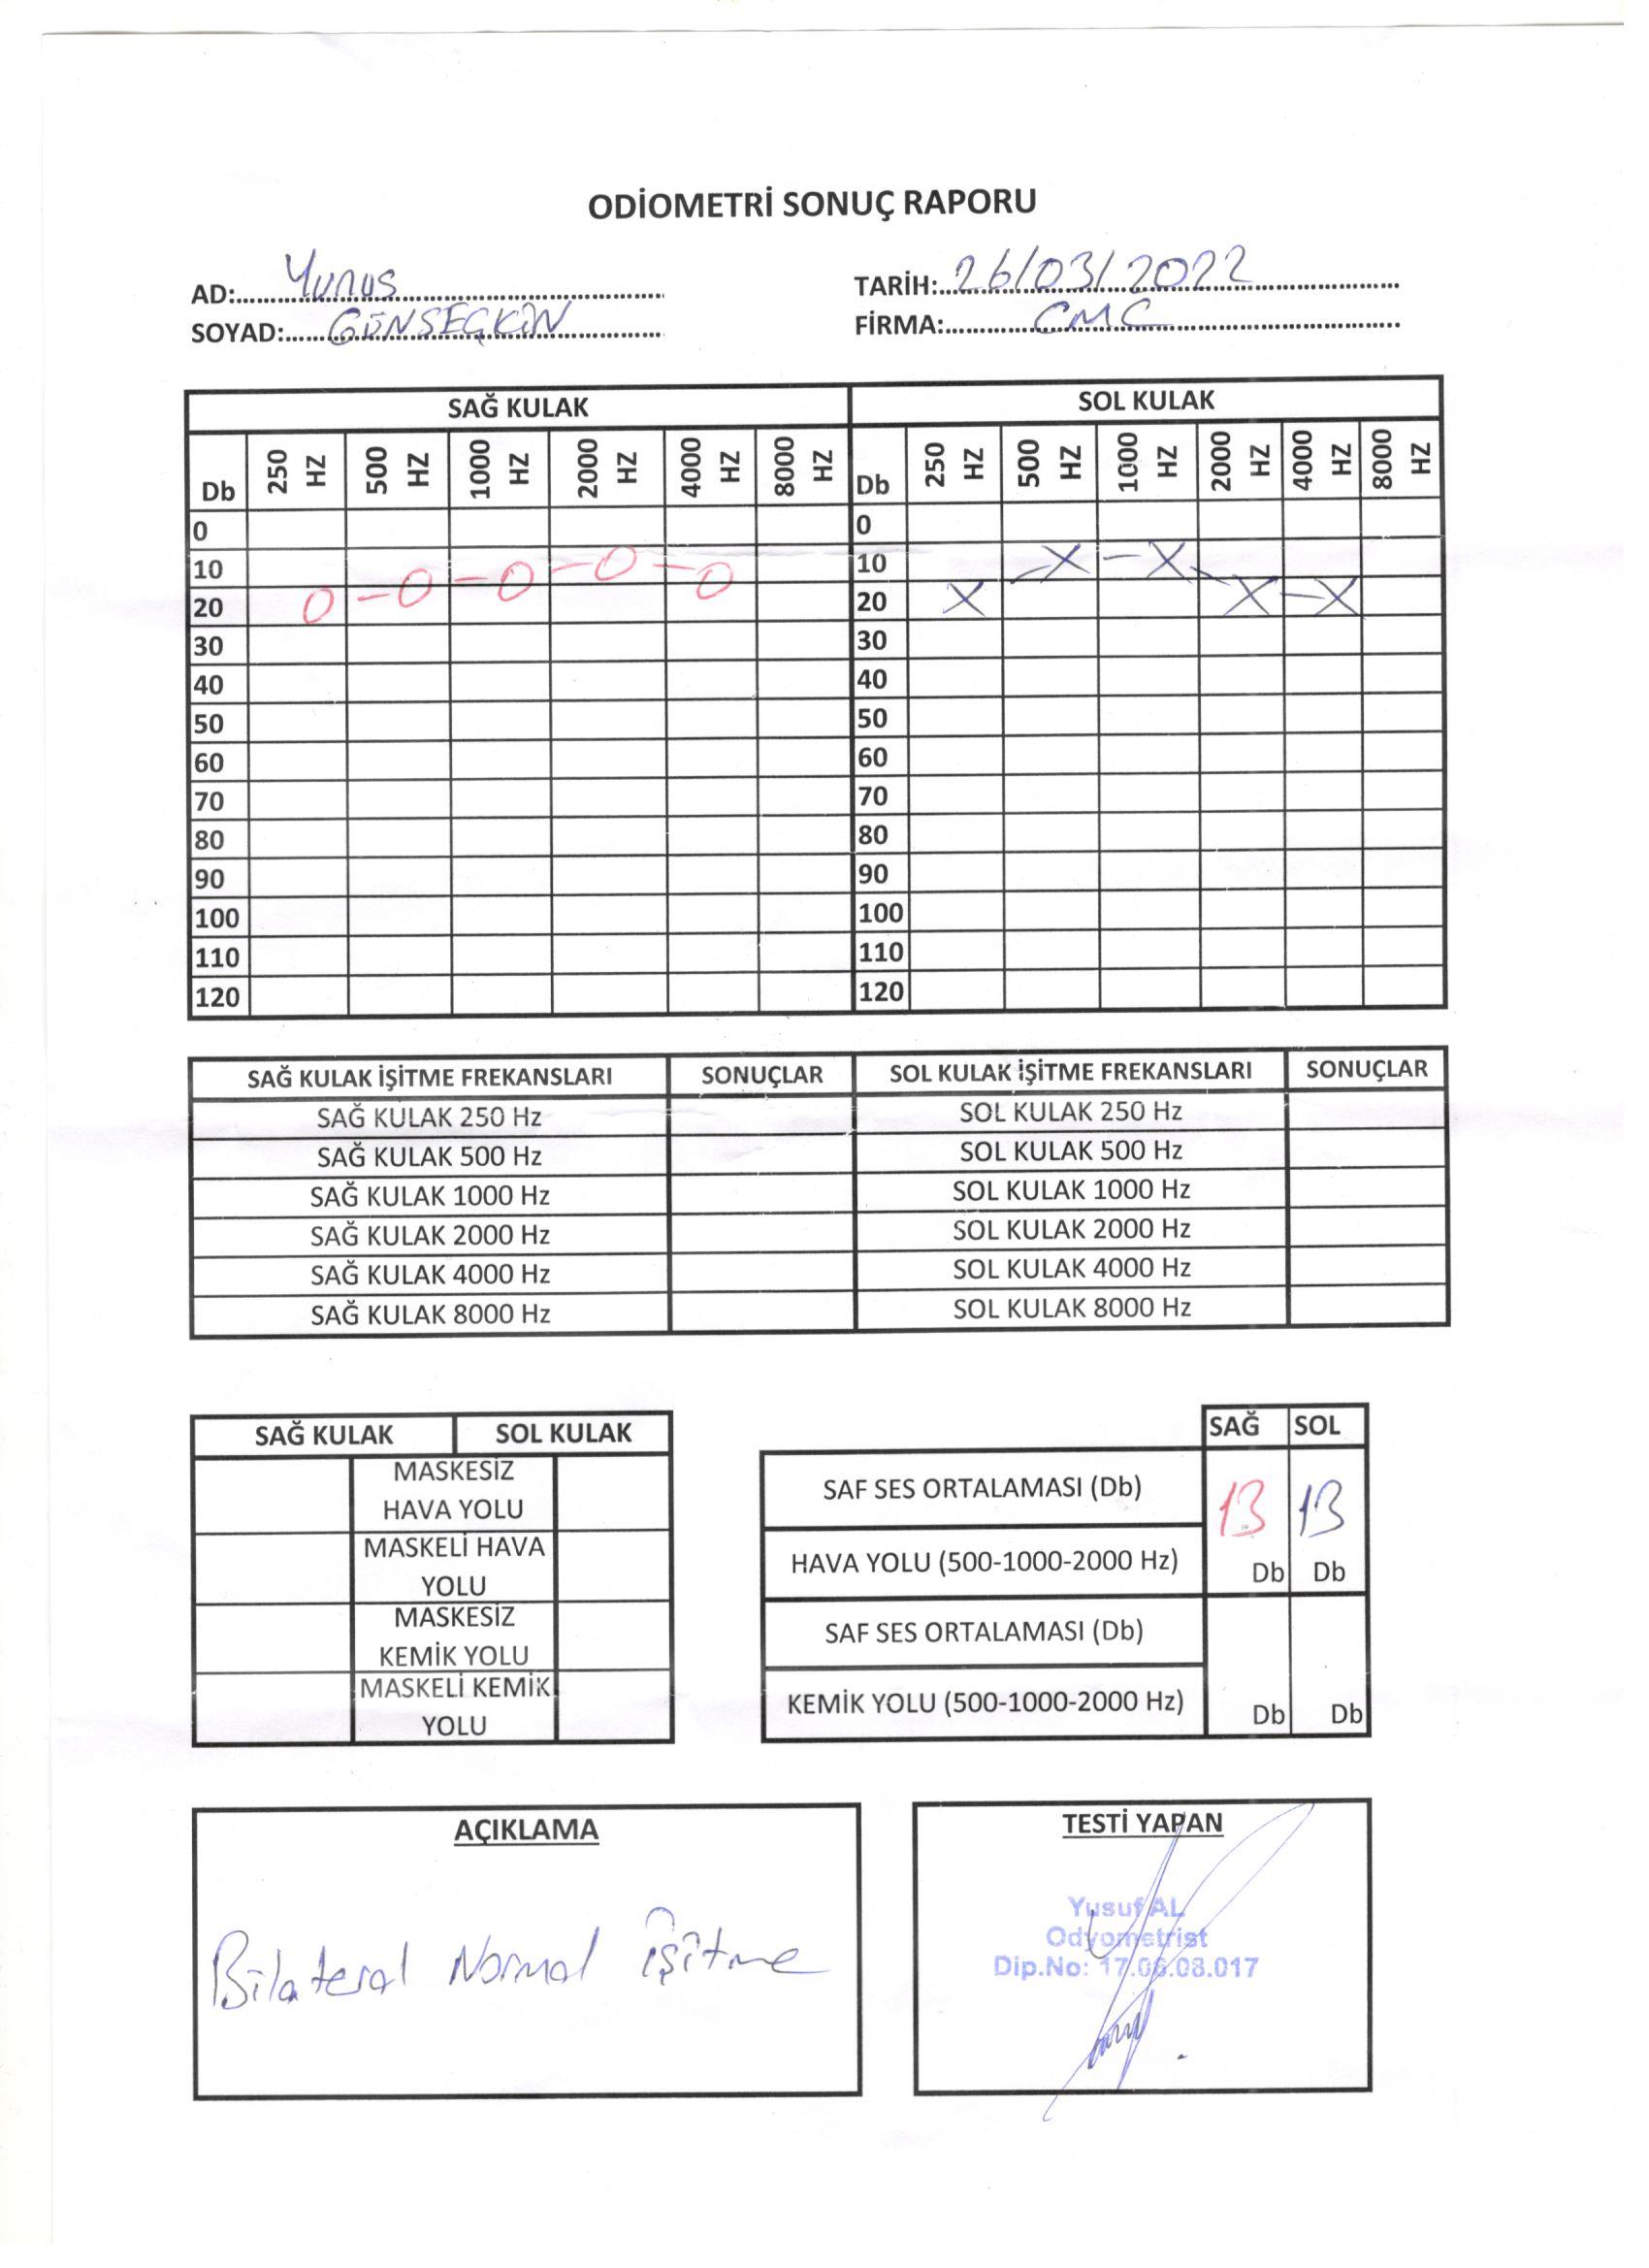 ODİOMETRİ SONUÇ RAPORU
AD: Yunus
TARİH: 26/03/2022
SOYAD: GÜNSEÇKİN
FİRMA: CMC
SAĞ KULAK SOL KULAK
Db 250 HZ 500 HZ 1000 HZ 2000 HZ 4000 HZ 8000 HZ Db 250 HZ 500 HZ 1000 HZ 2000 HZ 4000 HZ 8000 HZ
0 0
10 10
20 20
30 30
40 40
50 50
60 60
70 70
80 80
90 90
100 100
110 110
120 120
SAĞ KULAK İŞİTME FREKANSLARI SONUÇLAR SOL KULAK İŞİTME FREKANSLARI SONUÇLAR
SAĞ KULAK 250 Hz SOL KULAK 250 Hz
SAĞ KULAK 500 Hz SOL KULAK 500 Hz
SAĞ KULAK 1000 Hz SOL KULAK 1000 Hz
SAĞ KULAK 2000 Hz SOL KULAK 2000 Hz
SAĞ KULAK 4000 Hz SOL KULAK 4000 Hz
SAĞ KULAK 8000 Hz SOL KULAK 8000 Hz
SAĞ KULAK SOL KULAK
MASKESİZ
HAVA YOLU
MASKELİ HAVA
YOLU
MASKESİZ
KEMİK YOLU
MASKELİ KEMİK
YOLU
SAĞ SOL
SAF SES ORTALAMASI (Db) 13 13
HAVA YOLU (500-1000-2000 Hz) Db Db
SAF SES ORTALAMASI (Db)
KEMİK YOLU (500-1000-2000 Hz) Db Db
AÇIKLAMA
Bilateral Normal işitme
TESTİ YAPAN
Yusuf AL
Odyometrist
Dip.No: 17.06.08.017